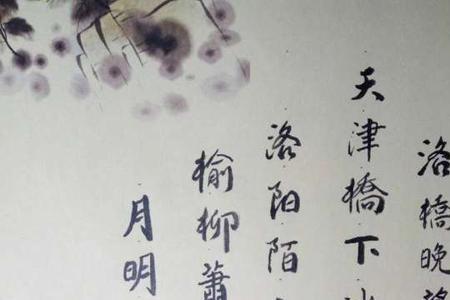 洛橋晚望
天津橋下
洛阳陌
榆柳蕭
月明